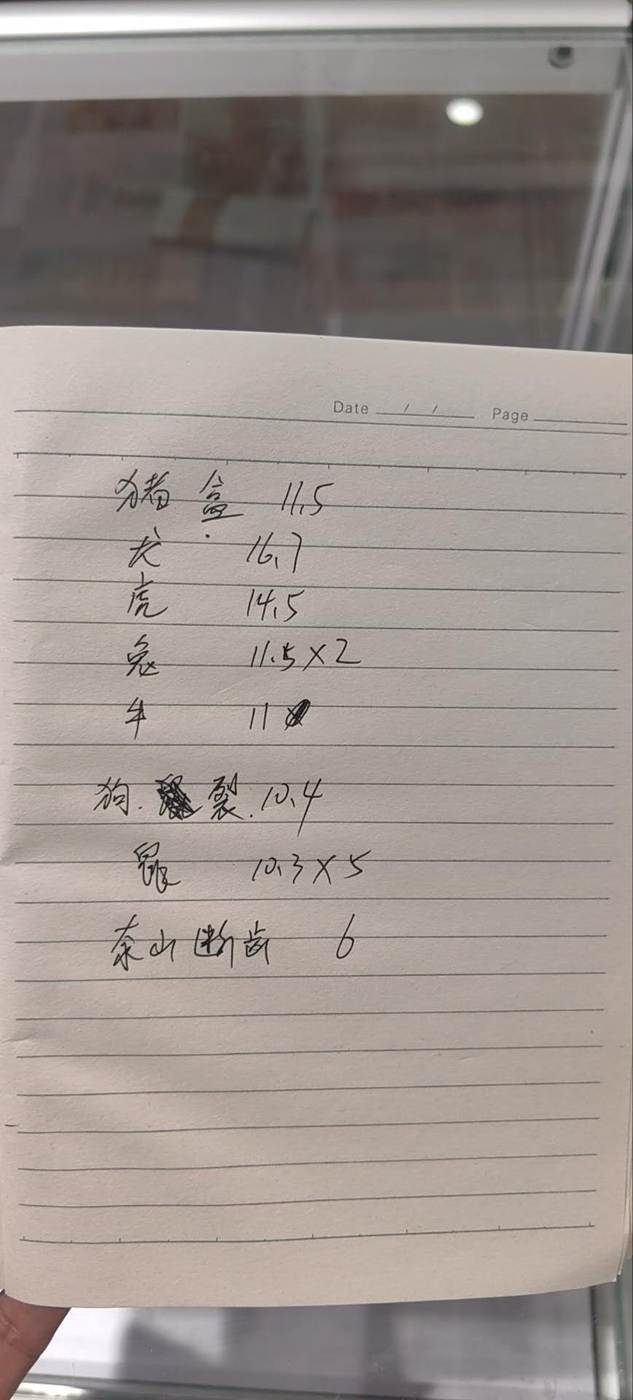 Date / / Page
猪 盒 11.5
犬 16.7
虎 14.5
兔 11.5×2
牛 11
狗. 裂. 10.4
鼠 10.3×5
泰山断齿 6